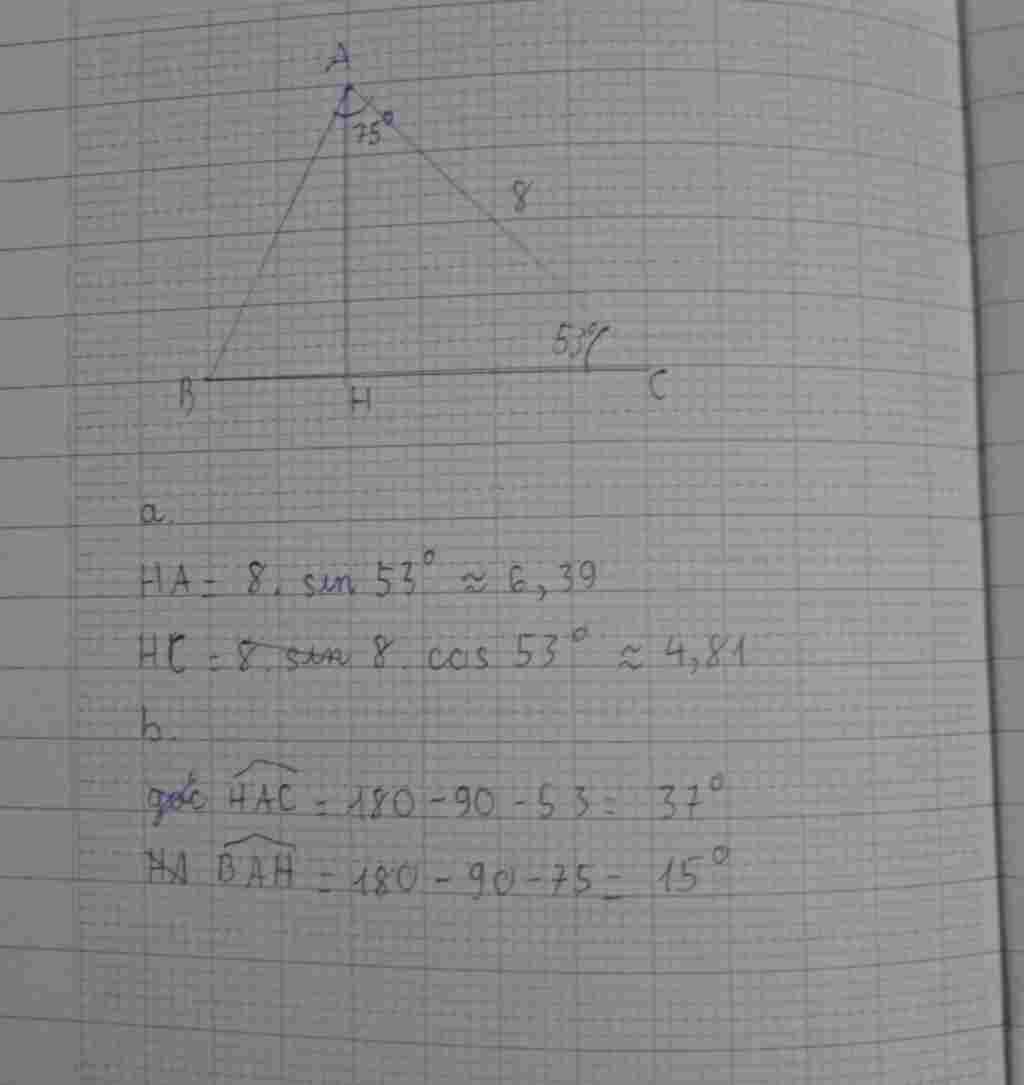 A
75°
8
53°
B
H
C
a.
HA = 8. sin 53° ≈ 6,39
HC = 8. sin 8. cos 53° ≈ 4,81
b.
góc HAC = 180 - 90 - 53 = 37°
BAH = 180 - 90 - 75 = 15°